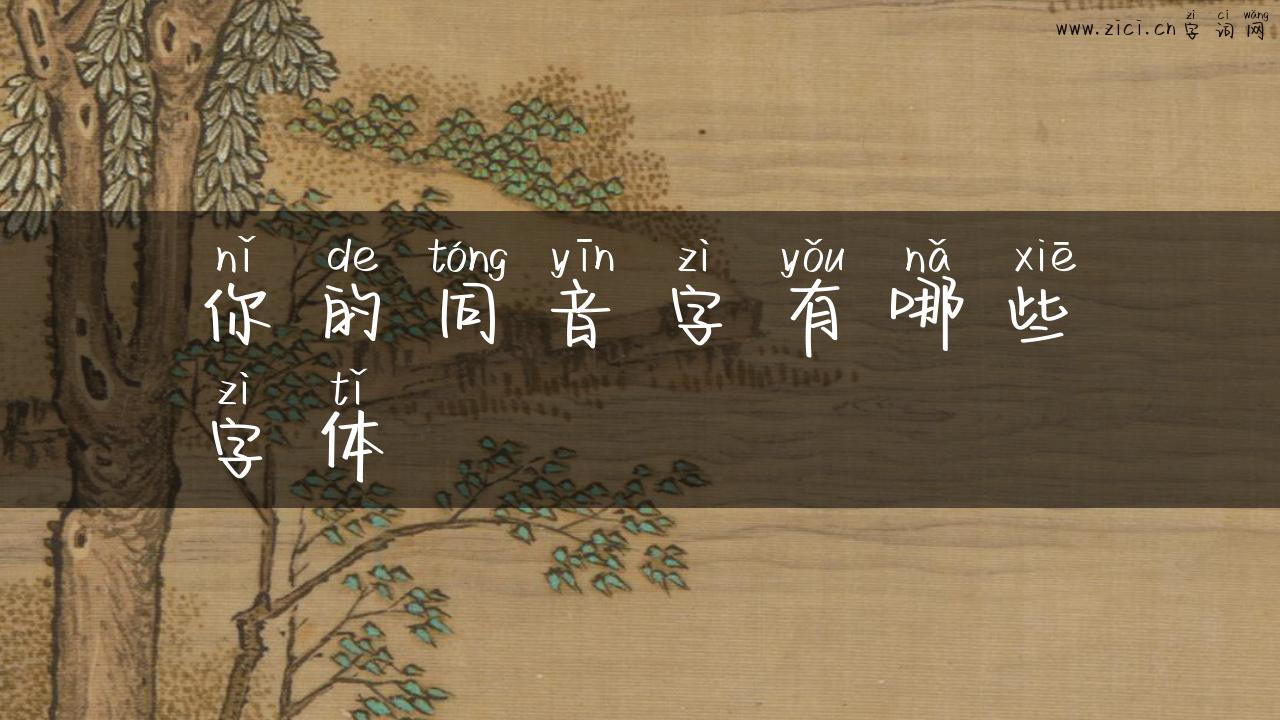 zì cí wǎng
www.zici.cn 字词网
nǐ de tóng yīn zì yǒu nǎ xiē
你的同音字有哪些
zì tǐ
字体